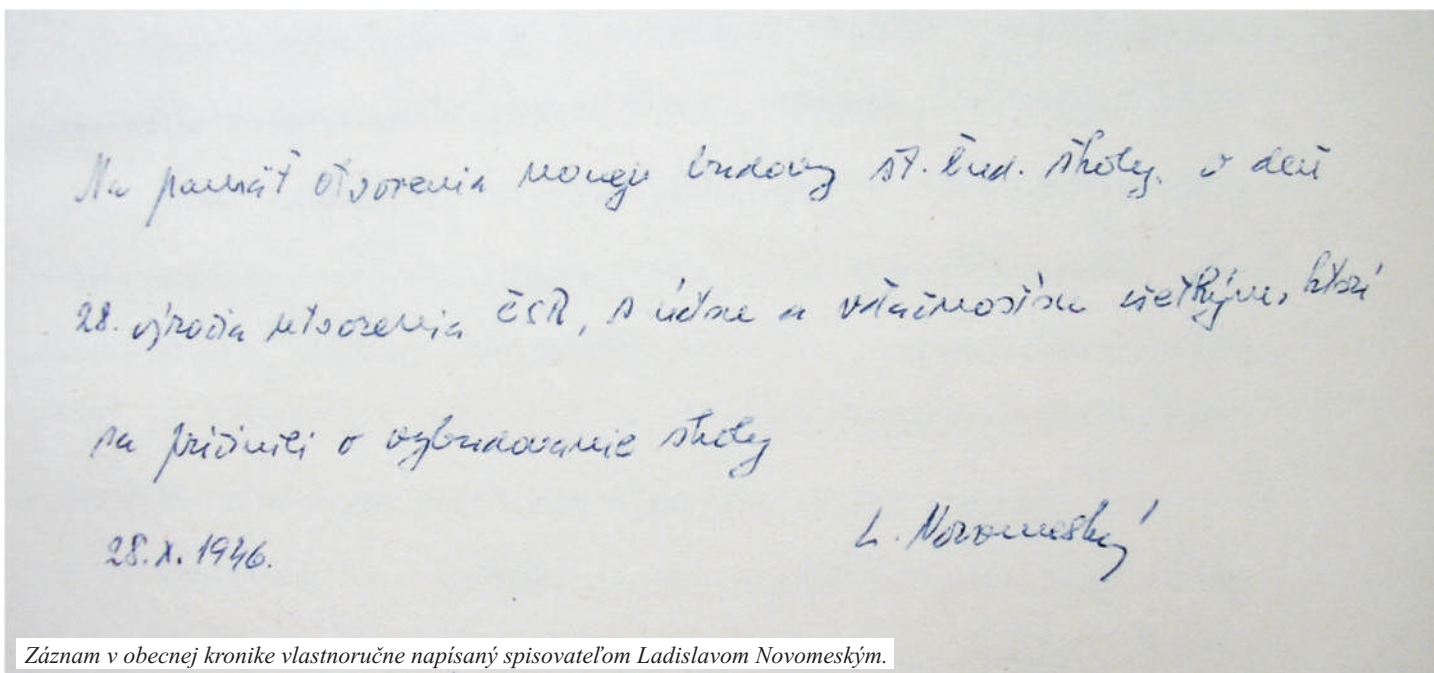 Na pamäť otvorenia novej budovy šť. ľud. školy. v deň
28. výročia utvorenia ČSR, s úctou a vďačnosťou všetkým, ktorí
sa pričinili o vybudovanie školy
28.X.1946.
L. Novomeský
Záznam v obecnej kronike vlastnoručne napísaný spisovateľom Ladislavom Novomeským.